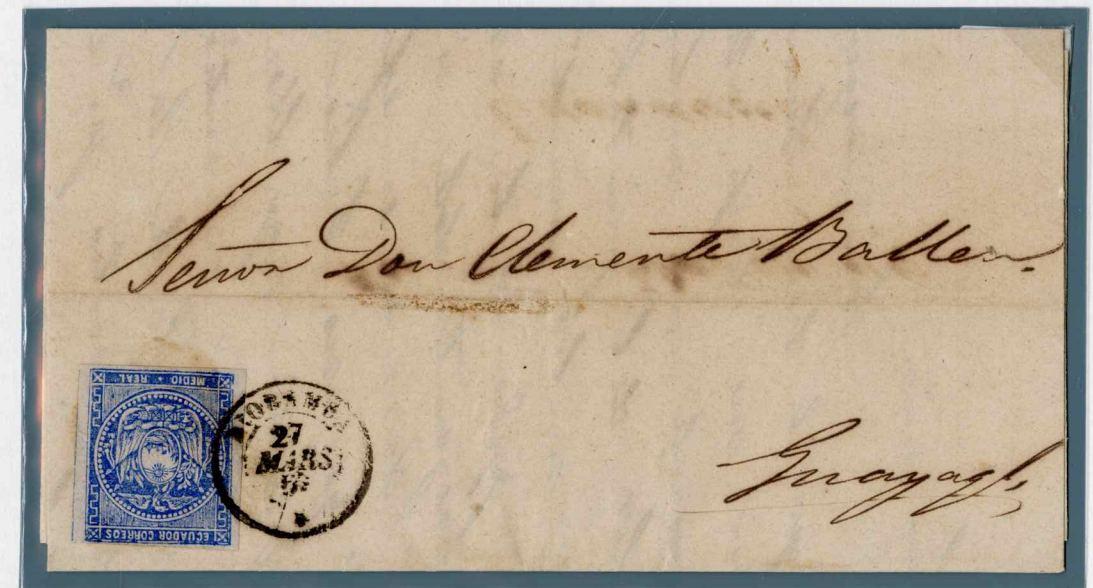 Señor Don Clemente Ballen.
MEDIO REAL
ECUADOR CORREOS
RIOBAMBA
27
MARS
Guayaql.